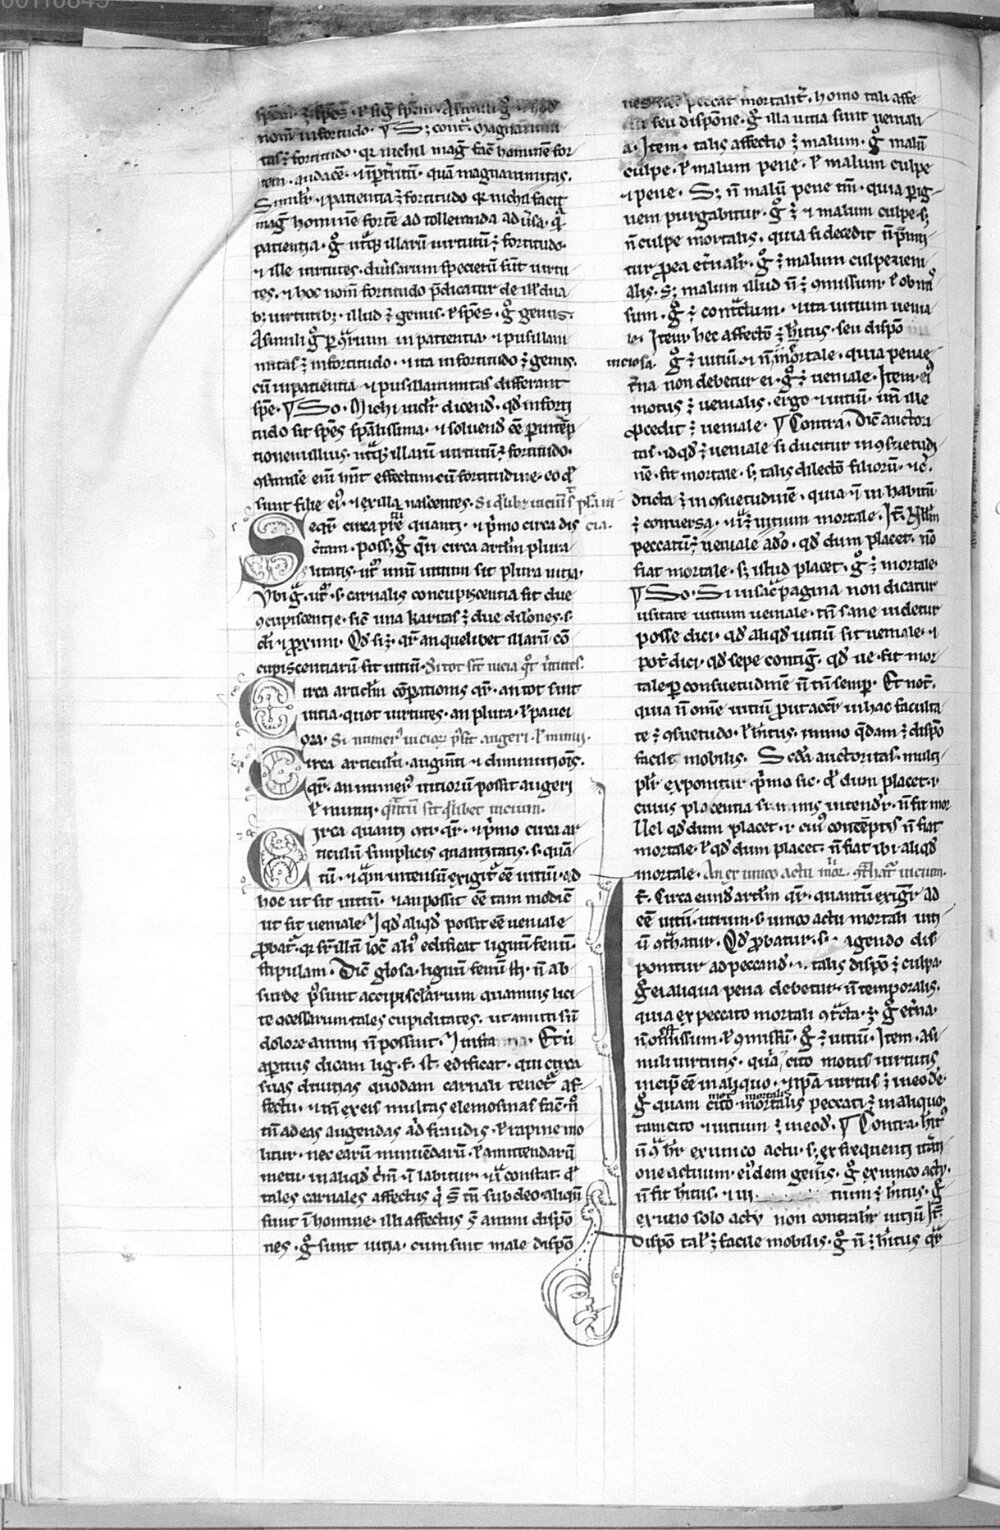 nom̅ infortudo · ¶ S; cont͛ · magnanimi
tas ē fortitudo · qꝛ nichil mag̅ fac̅ hominē for
tem · audacē · quā magnanimitas ·
Simil͛r · ⁊ patientia ē fortitudo qꝛ nichil facit
mag̅ hominē fortē ad tolleranda adũsa · q̄
patientia · g̊ utraq; illarū virtutū ē fortitudo ·
⁊ ille virtutes · diũsarum specierū sūt virtu
tes · ⁊ hoc nom̅ fortitudo p̄dicatur de ill̕ dua
bꝰ virtutibꝰ · illud ē genus · ł sp̄es · g̊ genus ·
A simili g̊ inpatientia · ⁊ pusillani
mitas ē infortitudo · ⁊ ita infortitudo ē genus ·
cū inpatientia · ⁊ pusillanimitas differant
sp̄e · ¶ So · Michi uidet̃ dicend̅ · qd̕ inforti
tudo sit sp̄es sp̄alissima · ⁊ soluend̅ ē
tionem illius · utraq; illarū virtutū ē fortitudo ·
effectum cū fortitudine · eo qd̕
sunt filie eiꝰ · ⁊ ex illa nascentes · Si q̕libꝫ uiciū s̕ pl̃a ui
Seqr̃ circa p̃tē quanti · ⁊ p̕mo circa dis cia ·
c̃tam · poss; g̊ q̃ri circa artic̃lm plura
litatis · utꝝ unū uitium sit plura uitia ·
Vbi g̊ · utꝝ · s · carnalis concupiscentia sit due
ꝯcupiscentie · sic̃ una karitas ē due dil̃ones · s ·
d̅i · ⁊ ꝓximi · Qd̕ si ē · q̃r an quelibet illarū cō
cupiscentiarū sit uitiū · Si tot sīt uicia qͦt ũtutes ·
Circa artic̃lm cōparationis q̃r · an tot sint
uitia · quot virtutes · an plura · ł pauci
ora · Si numerꝰ uicioꝝ p̕sit augeri · ł minui ·
Circa articulū · augm̅ti ⁊ diminutiōis ·
q̃r · an numerꝰ uitiorū possit augeri
ł minui · q̃ntū sit q̕libet uicium ·
Circa quanti q̃r · ⁊ p̕mo circa ar
ticulū simplicis quantitatis · s · quā
tū · ⁊ q̃m intensū exigit̃ ēē uitiū · ad
hoc ut sit uitiū · ⁊ an possit ēē tam modicū
ut sit ueniale · Iqd̕ aliqd̕ possit ēē ueniale
ꝓbat̃ · qꝛ sr̃ illū loc̃ aliꝰ edificat lignū fenū
stipulam · Dic̃ glosa · lignū fenū sti · n̄ ab
surde p̕sunt accipi sc̃larium quamuis lici
te ꝯcessarum tales cupiditates · ut amitti sn̄
dolore animi n̄ possint · Et ũ
apertius dicam lig · f · st̃ · edificat · qui circa
suas diuitias quodam carnali tenet̃ af
fectu · ⁊ tn̄ ex eis multas elemosinas fac̃ · n̄
tn̄ ad eas augendas ad fraudis · ł rapine mo
litur · nec earū minuendarū · ł amittendarū
metu · in aliqd̕ c̃m̅ ī labitur · constat · qd̕
tales carnales affectus q̕ s̅ tn̄ sub deo aliqn̄
sunt ī homine · illi affectus s̅ animi dispō
nes · g̊ sunt uitia · cum sint male dispō
nes peccat mortalit̃ · homo tali affe
seu dispōne · g̊ illa uitia sunt uenia li
a · Item · talis affectio ē malum · g̊ malū
culpe · ł malum pene · ł malum culpe
⁊ pene · S; n̄ malū pene tm̅ · quia p̱ ig
nem purgabitur · g̊ ē ⁊ malum culpe · s;
n̄ culpe mortalis · quia si decedit n̄ p̄mit
tur ꝓ ea et̃nalit̃ · g̊ ē malum culpe ueni
alis · s; malum illud n̄ ē ꝯmissum · ł obmis
sum · g̊ ē cont̃ctum · ⁊ ita uitium uenia
le · Item hec affectō ē h̕itus · seu dispō
uiciosa · g̊ ē uitiū · ⁊ n̄ mortale · quia pena e
t̃na non debetur ei · g̊ ē ueniale · Item · eiꝰ
motus ē uenialis · ergo ⁊ uitiū · un̄ ille
ꝓcedit ē ueniale · ¶ Contra · Dic̃ auctori
tas · id qd̕ ē ueniale si ducitur in ꝯsuetudi
nē · fit mortale · s; talis dilectō filiorū · ⁊c̃ ·
ducta ē in ꝯsuetudinē · quia ī in habitū
ē conuersa · uitium mortale · It̃ · Nullm̅
peccatū ē ueniale ado · qd̕ dum placet · nō
fiat mortale · s; istud placet · g̊ ē mortale ·
¶ So · Si in sac̃ pagina non dicatur
usitate uitium ueniale · tn̄ sane uidetur
posse dici · qd̕ aliqd̕ uitiū sit ueniale · ⁊
pot̃ dici · qd̕ sepe contig̃ · qd̕ ue · fit mor
tale p̱ consuetudinē n̄ tn̄ semp̱ · Et not̃ ·
quia n̄ omē uitiū prout acc̃r in hac faculta
te ē ꝯsuetudo · ł h̕itus · immo q̃dam ē dispō
facile mobilis · Sc̃da auctoritas · multi
plr̃ exponitur p̕mo sic · qd̕ dum placet · ⁊
cuius placentia s nimis intend̃r · n̄ fit mor
Uel qd̕ dum placet · ⁊ eiꝰ conceptꝰ n̄ fiat
mortale · ł qd̕ dum placet · n̄ fiat ibi · aliqd̕
mortale · An ex unico actu mor̃ · ꝯt̃hat̃ uicium
It̃ · Circa eund̅ artic̃lm q̃r · quantū exig̃r ad
ēē uitiū · utrum · s · unico actu mortali uiti
ū ꝯt̃hatur · Qd̕ ꝓbatur · s · agendo dis
ponitur ad peccand̅ · ⁊ · talis dispō ē culpa ·
g̊ ei aliqua pena debetur · n̄ temporalis ·
quia ex peccato mortali ꝯt̃cta · ē · g̊ et̃na ·
n̄ omissum · ł ꝯmissū · g̊ ē uitiū · Item · a si
mili virtutis · quā cito motus virtutis
incip̃ ēē in aliquo · ⁊ ip̄a virtus ē in eod̅e ·
g̊ quam cito mortalis peccati ē in aliquo
tam cito ⁊ uitium ē in eod̅ · ¶ Contra · h̕itꝰ
n̄ aq̃r̃ ex unico actu · s; ex frequenti it̃ati
one actuum · eiꝰdem gen̕is · g̊ ex unico actu ·
n̄ fit h̕itus · tium ē h̕itus · g̊
ex uero solo actu non contrah̃r uitiū It̃ ·
Dispō tal̕ ē facile mobilis · g̊ n̄ ē h̕itus q̃r